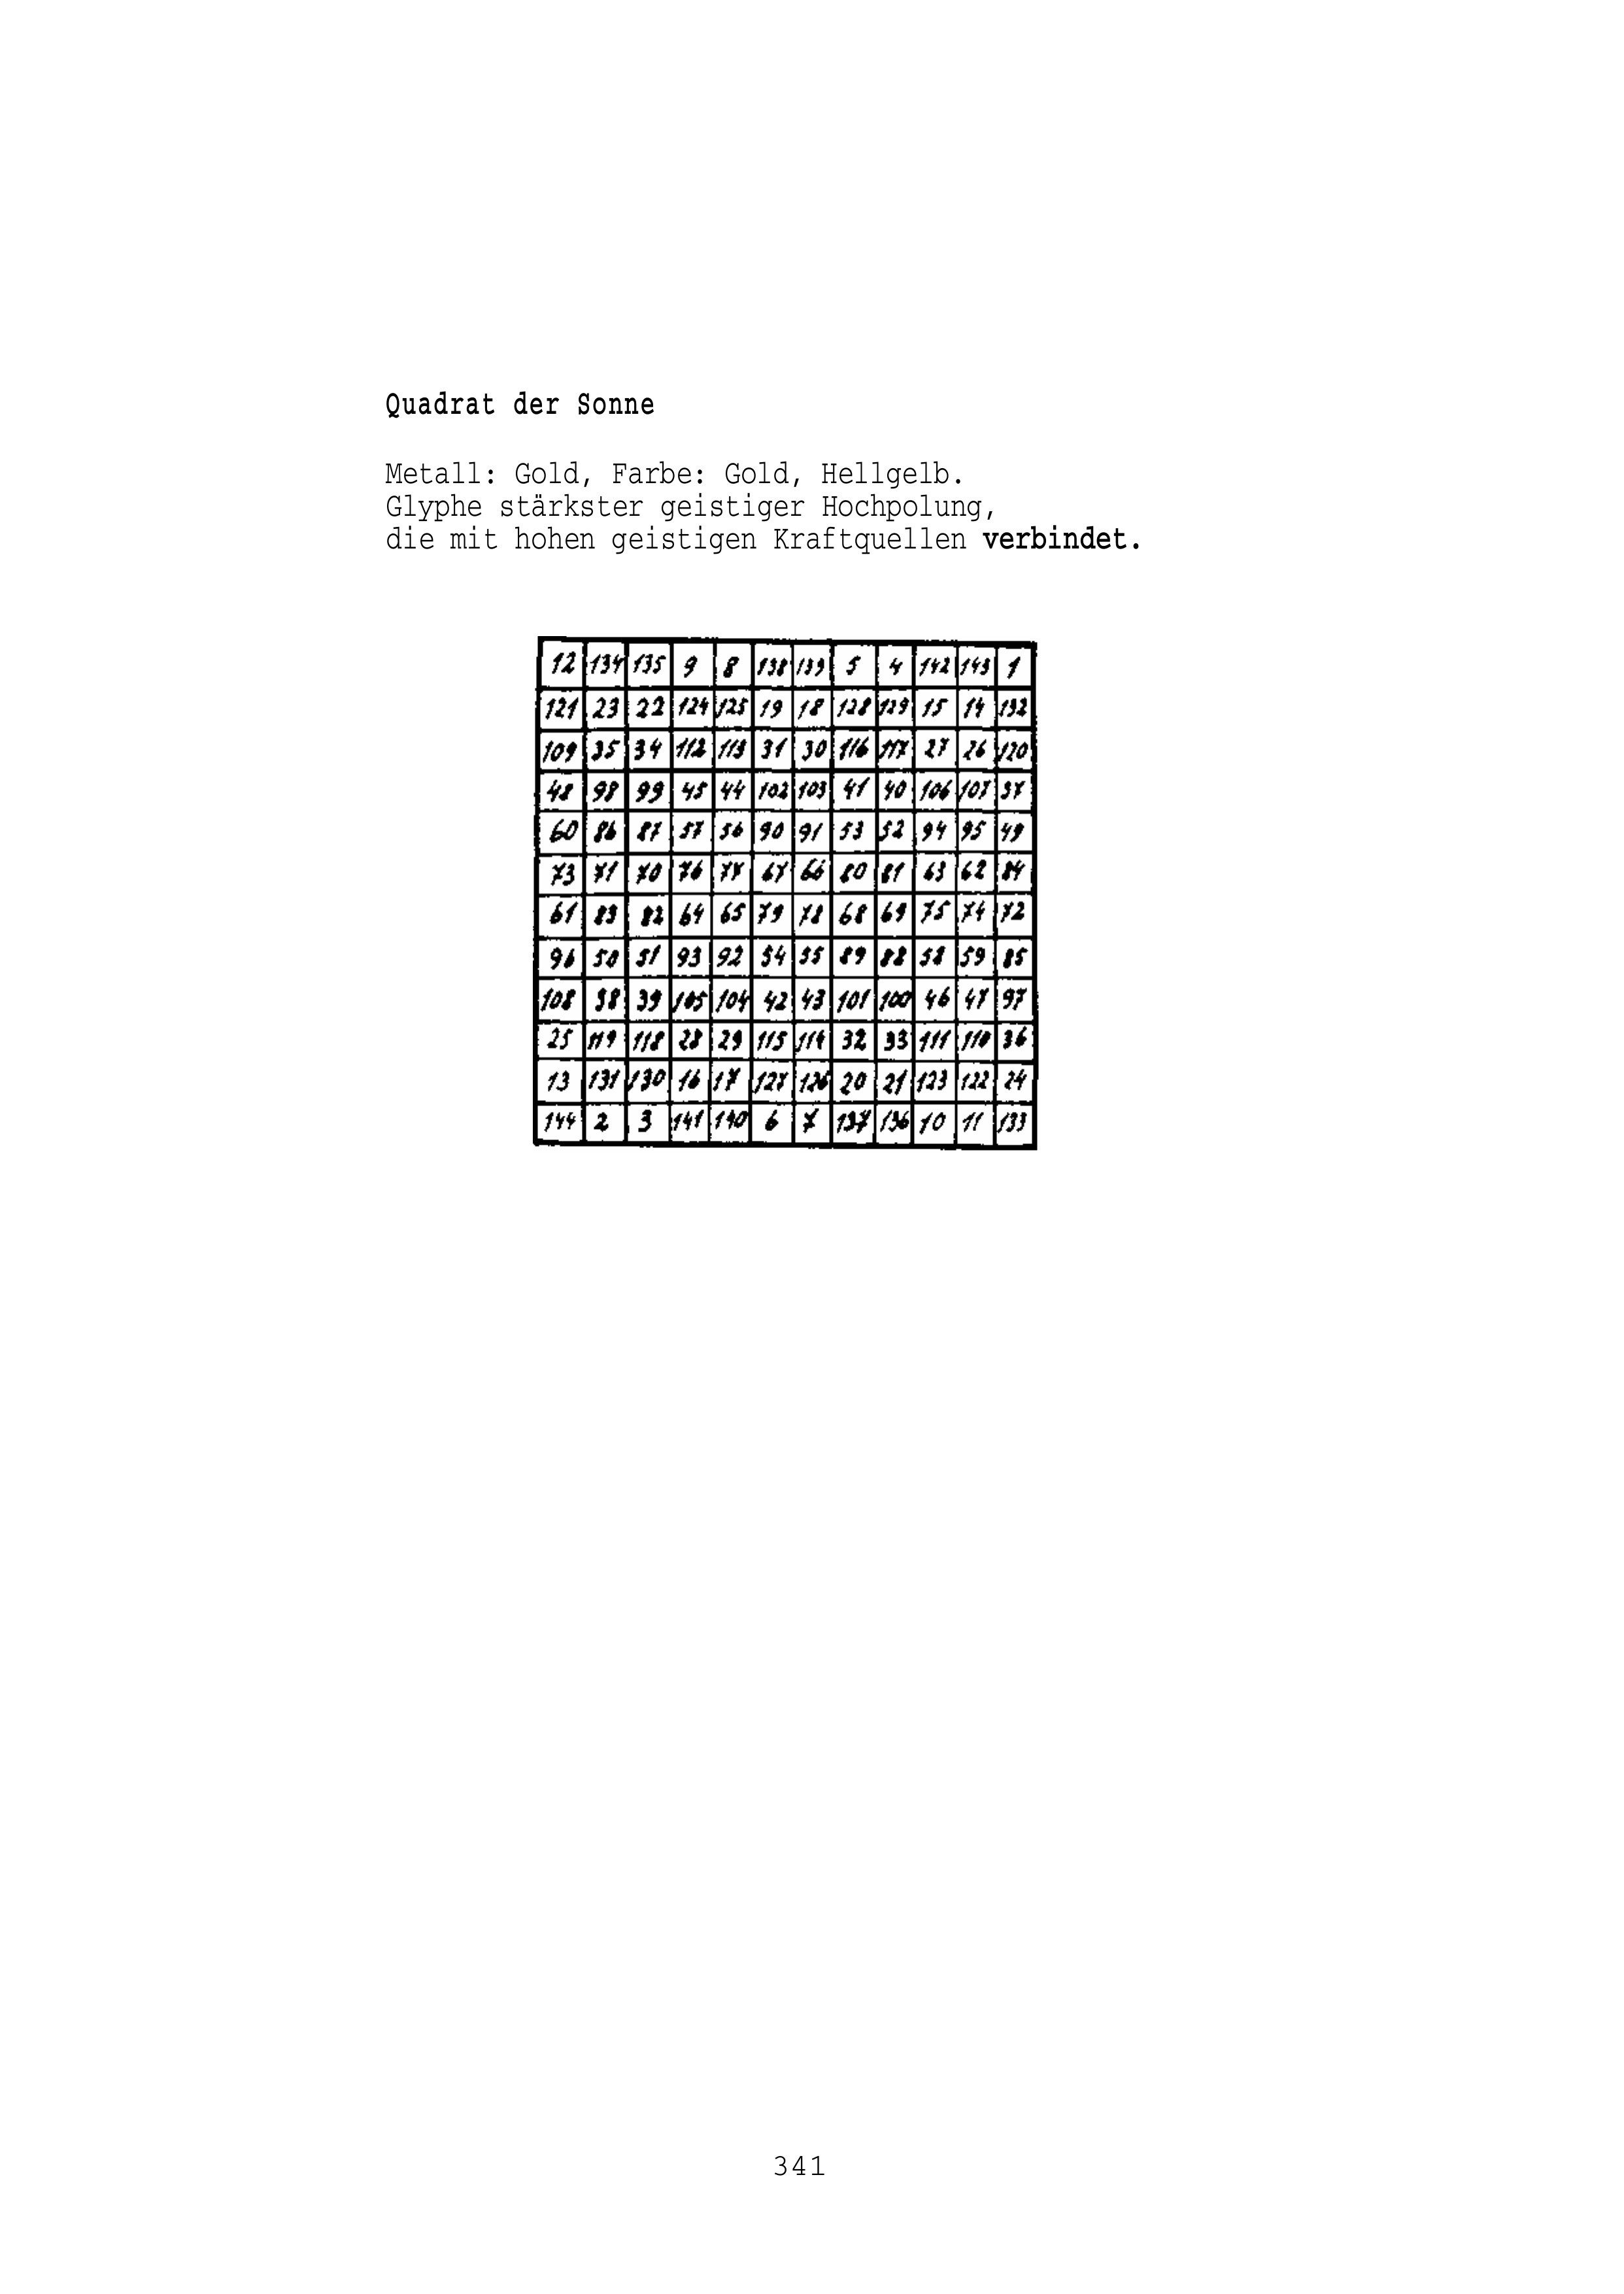 Quadrat der Sonne
Metall: Gold, Farbe: Gold, Hellgelb.
Glyphe stärkster geistiger Hochpolung,
die mit hohen geistigen Kraftquellen verbindet.
12 134 135 9 8 138 139 5 4 142 143 1
121 23 22 124 125 19 18 128 129 15 14 132
109 35 34 112 113 31 30 116 117 27 26 120
48 98 99 45 44 102 103 41 40 106 107 37
60 86 87 57 56 90 91 53 52 94 95 49
73 71 70 76 77 67 66 80 81 63 62 84
61 83 82 64 65 79 78 68 69 75 74 72
96 50 51 93 92 54 55 89 88 58 59 85
108 38 39 105 104 42 43 101 100 46 47 97
25 119 118 28 29 115 114 32 33 111 110 36
13 131 130 16 17 127 126 20 21 123 122 24
144 2 3 141 140 6 7 137 136 10 11 133
341